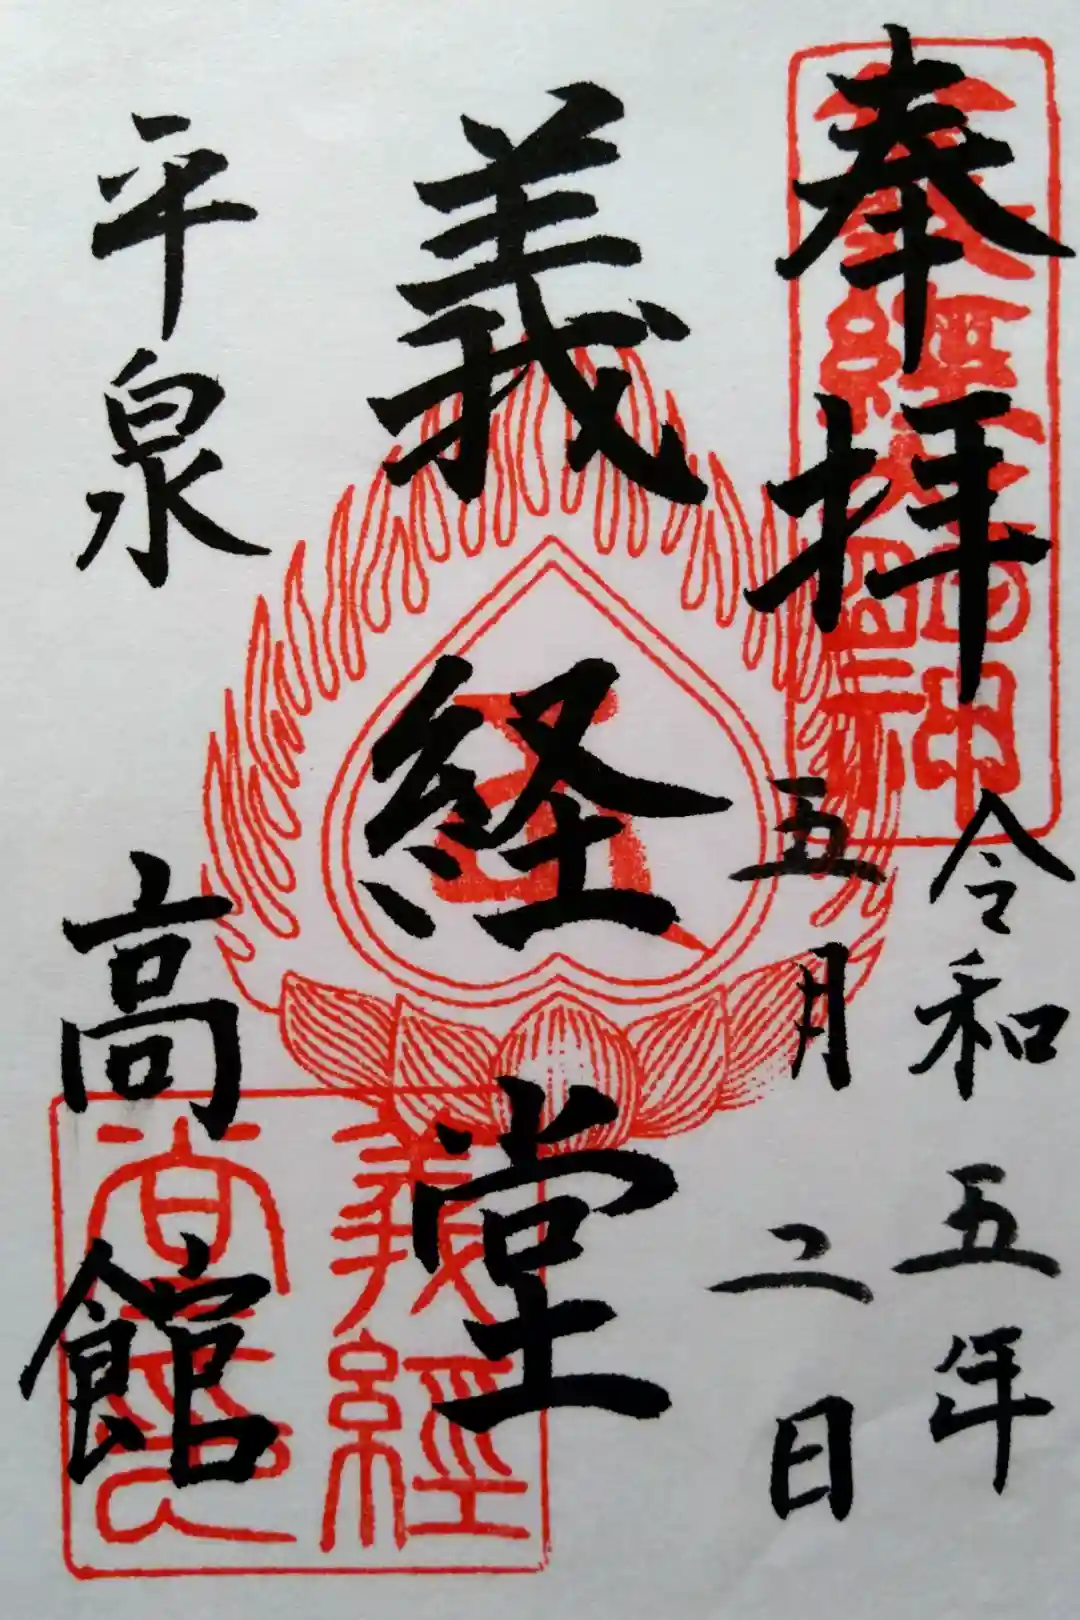 奉拝
令和五年
五月二日
義経堂
平泉 高館
義經